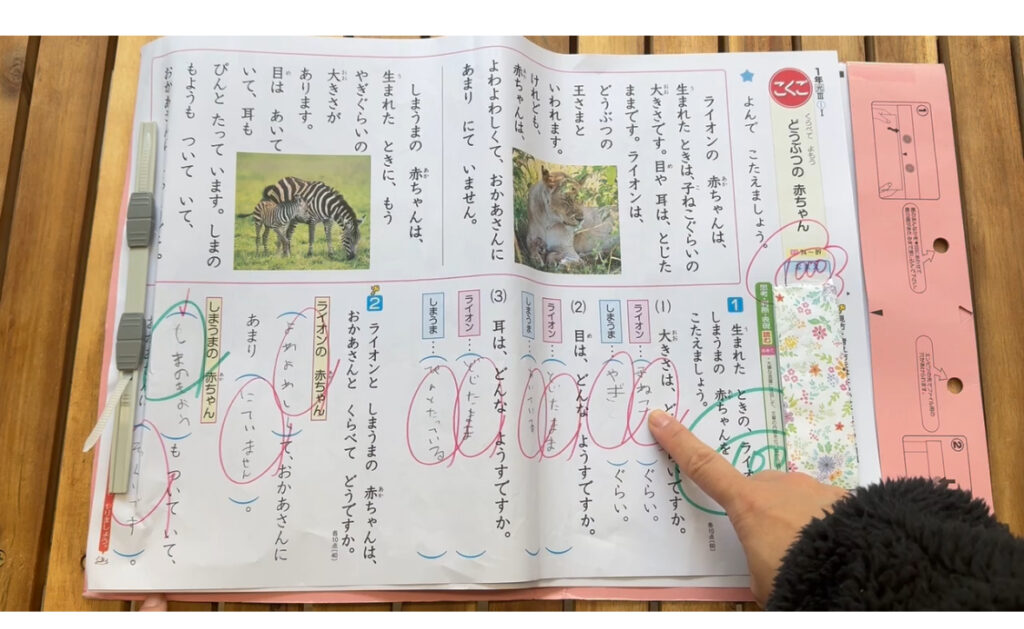 1年
こくご
くらべて よもう
どうぶつの 赤ちゃん
よんで こたえましょう。
ライオンの 赤ちゃんは、
生まれた ときは、子ねこぐらいの
大きさです。目や 耳は、とじた
ままです。ライオンは、
どうぶつの
王さまと
いわれます。
けれども、
赤ちゃんは、
よわよわしくて、おかあさんに
あまり にて いません。
しまうまの 赤ちゃんは、
生まれた ときに、もう
やぎぐらいの
大きさが
あります。
目は あいて
いて、耳も
ぴんと たって います。しまの
もようも ついて いて、
1
生まれた ときの、ライオ
しまうまの 赤ちゃんを
こたえましょう。
(1) 大きさは、ど
いですか。
子ねこ ぐらい。
しまうま…
やぎ ぐらい。
(2) 目は、どんな ようすですか。
ライオン…
とじたまま
しまうま…
(3) 耳は、どんな ようすですか。
ライオン…
とじたまま
しまうま…
ぴんとたっている
2
ライオンと しまうまの 赤ちゃんは、
おかあさんと くらべて どうですか。
各10点
ライオンの 赤ちゃん
よわよわし して、おかあさんに
あまり にていません。
しまうまの 赤ちゃん
しまのもようも ついて いて、
①
②